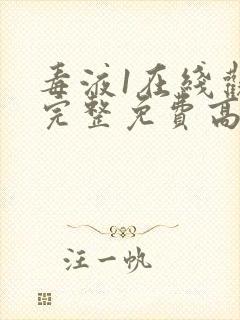 毒液1在线
完整免费高
汪一帆